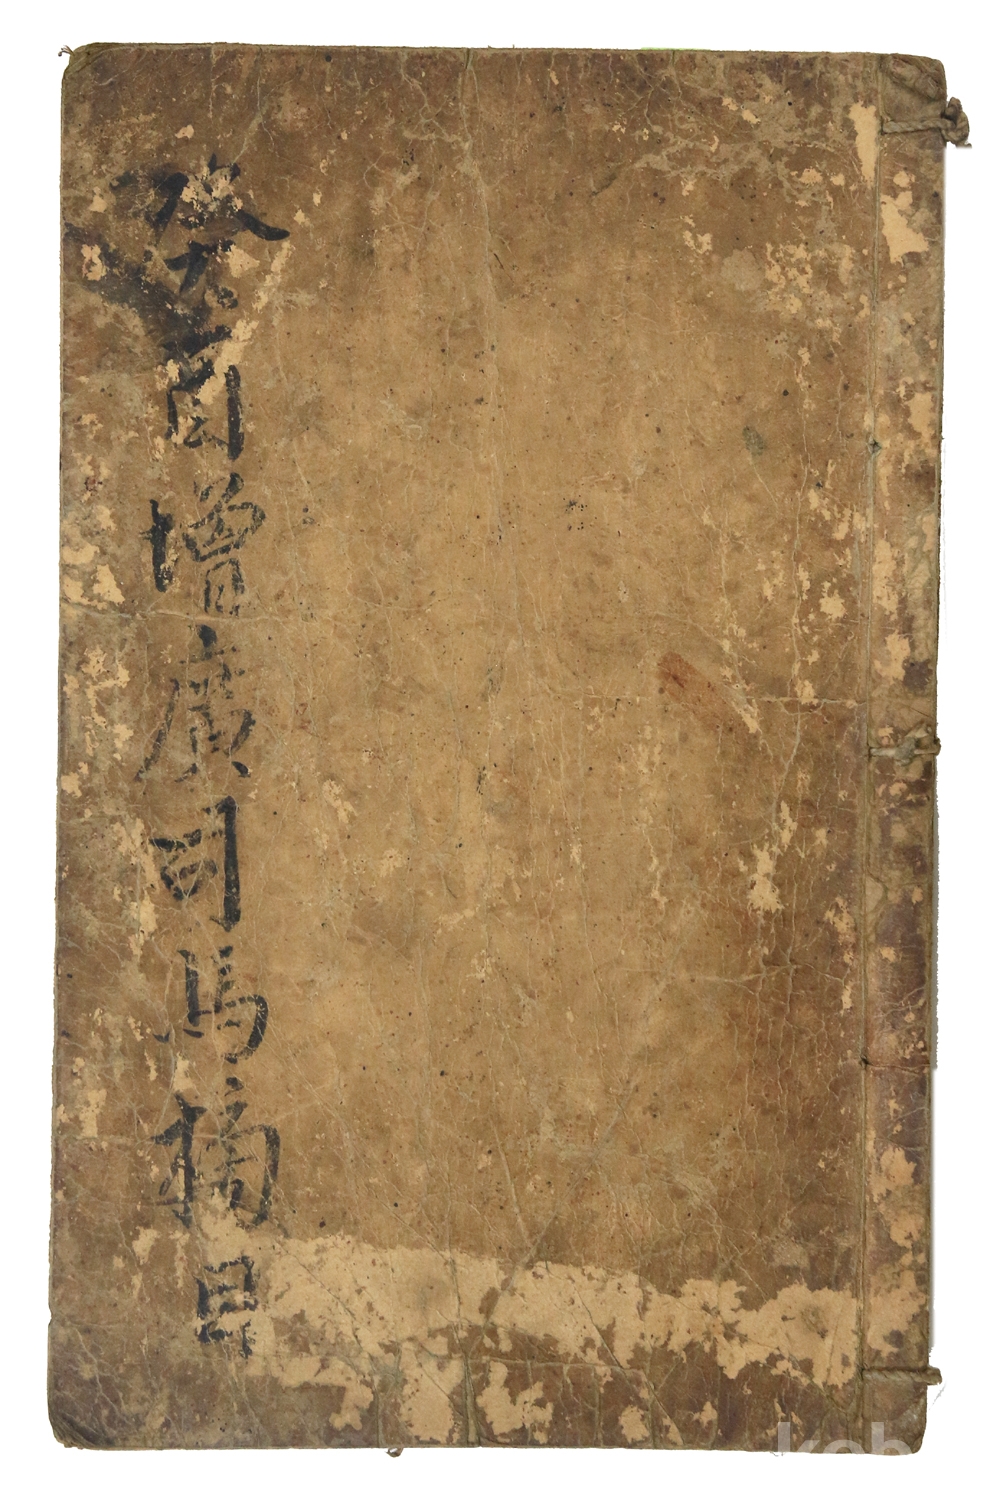 癸酉增廣司馬榜目
kob